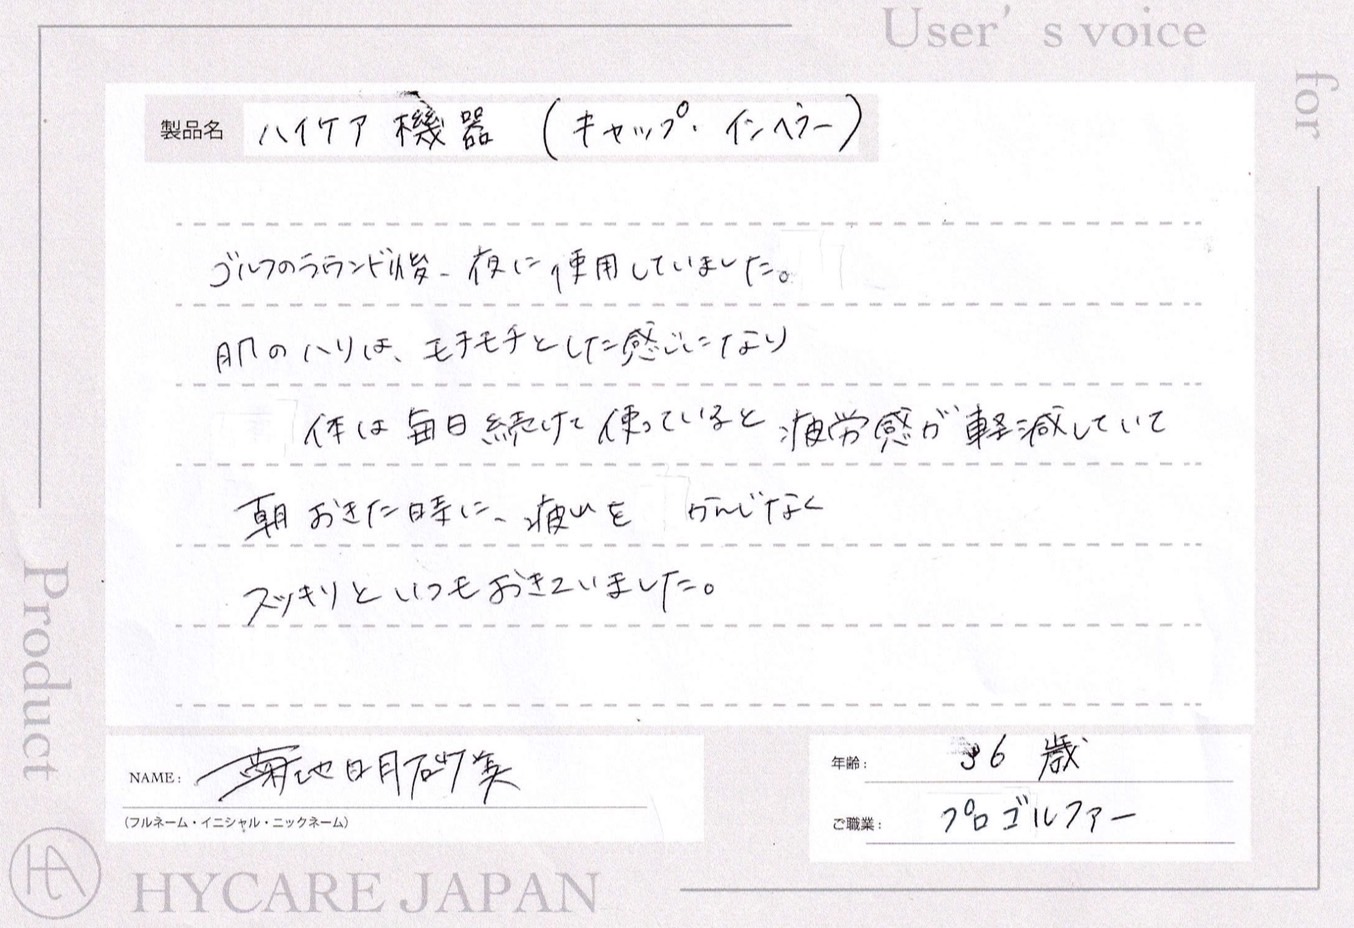 User's voice
for
製品名 ハイケア 機器 (キャップ・インペラー)
ゴルフのラウンド後、夜に使用していました。
肌のハリは、モチモチとした感じになり
体は毎日続けて使っていると疲労感が軽減していて
朝おきた時に、疲れを かんじなく
スッキリといつもおきていました。
Product
NAME: 菊地明砂美
(フルネーム・イニシャル・ニックネーム)
年齢: 36 歳
ご職業: プロゴルファー
HA
HYCARE JAPAN